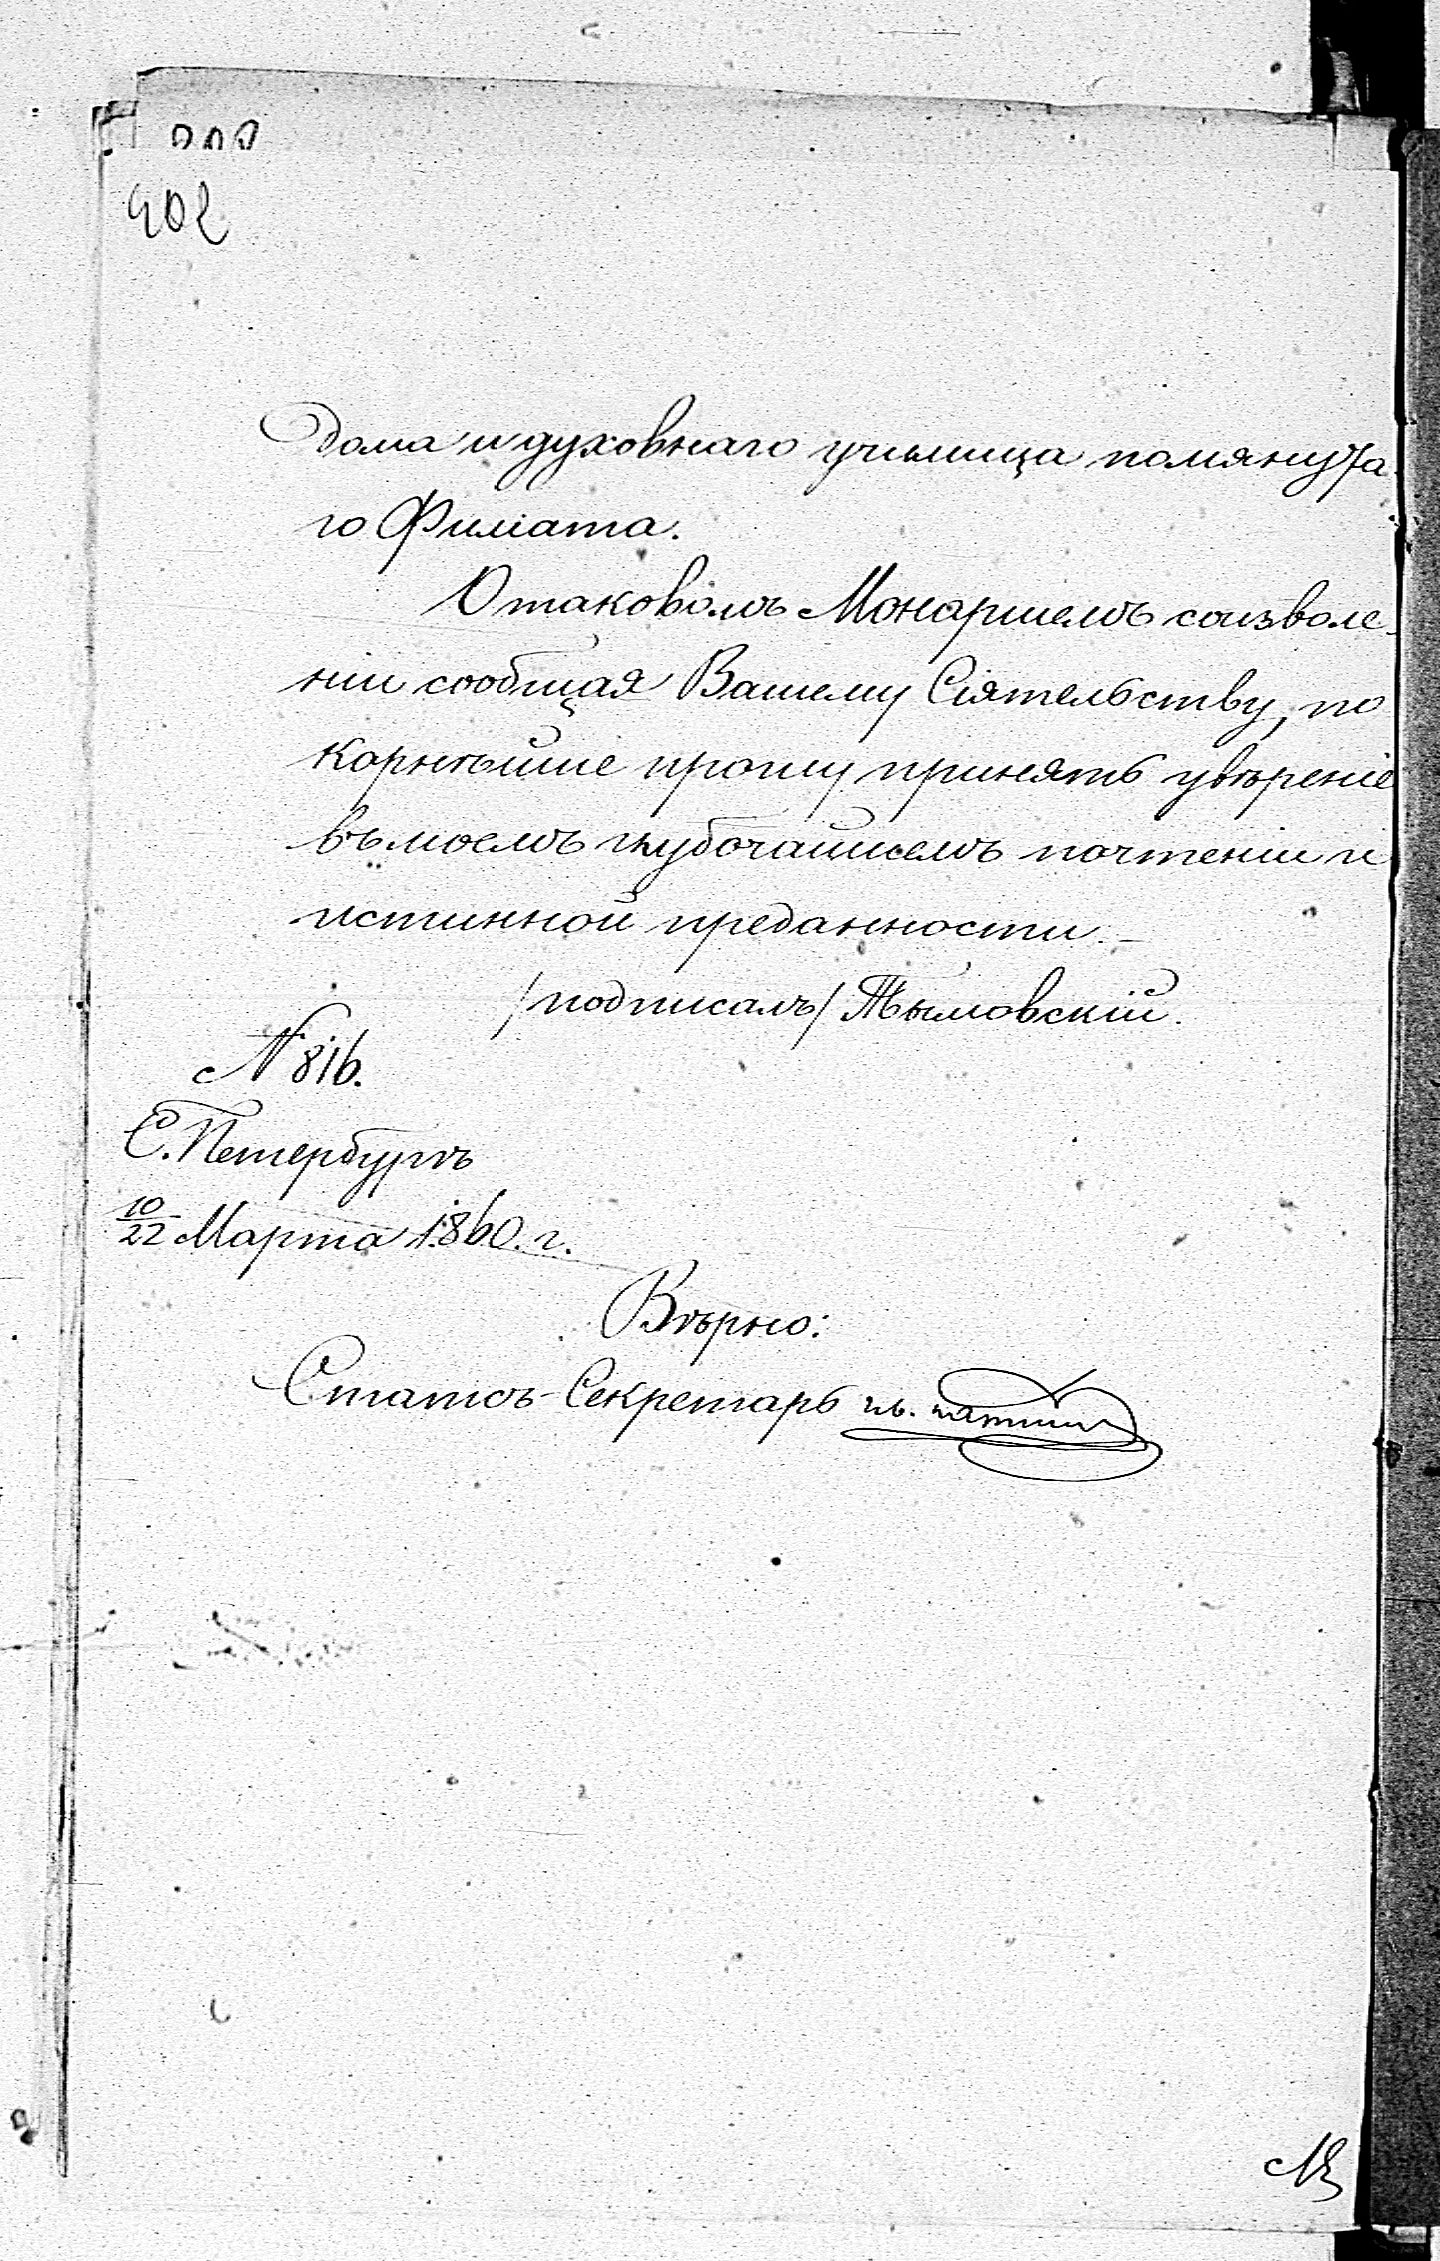 402
Дома и духовнаго училища помянута-
го Филіата.
О таковомъ Монаршемъ соизволе-
ніи сообщая Вашему Сіятельству, по
корнѣйше прошу принять увѣреніе
въ моемъ глубочайшемъ почтеніи и
истинной преданности. —
/подписалъ/ Тымовскій.
№ 816.
С. Петербургъ
10/22 Марта 1860. г.
Вѣрно:
Статсъ-Секретарь